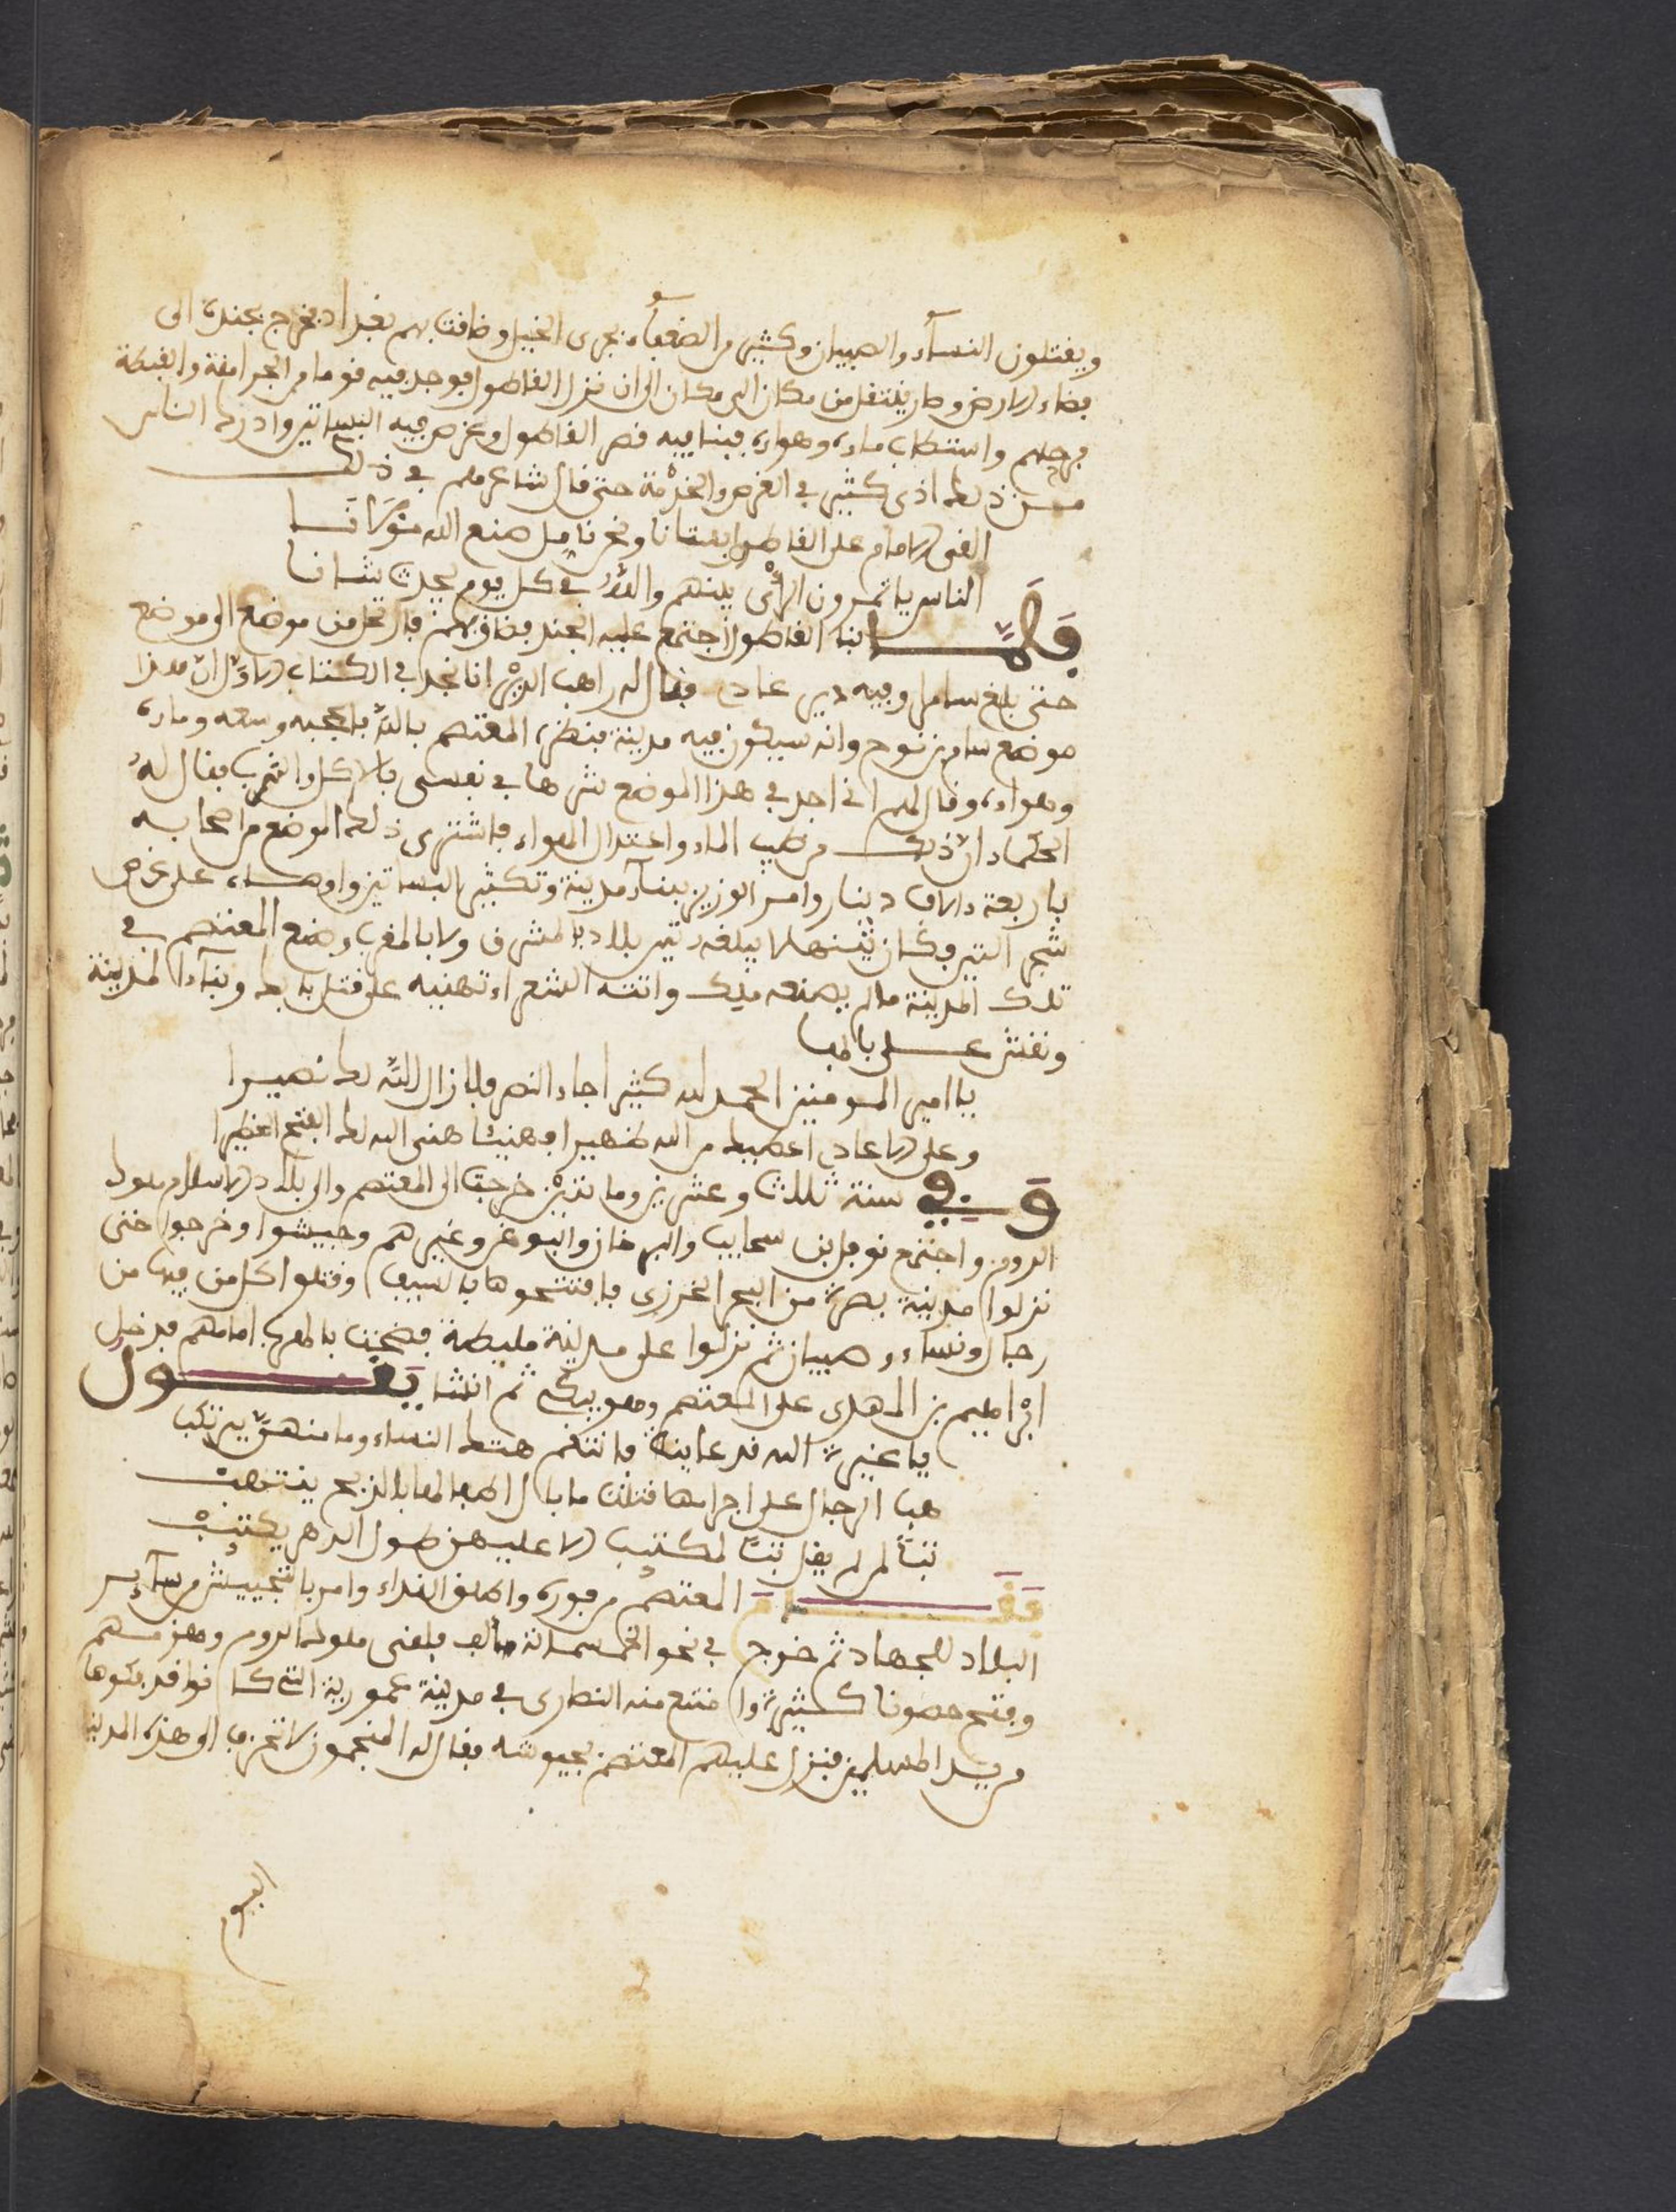 ويقتلون النساء والصبيان وكثير من الضعفاء بجرى الخيل وضاقت بهم بغداد فخرج بجنده الى
فضاء الارض وصار ينتقل من مكان الى مكان الى ان نزل القاطول فوجد فيه قوما من الجرامقة والقبطة
فرحلهم واستطاب ماءه وهواه فبنا فيه قصر القاطول وغرس فيه البساتين وادرك الناس
من ذلك اذى كثير في الغرس والخدمة حتى قال شاعرهم في ذلك
الناس ياتمرون الراي بينهم والله في كل يوم يحدث شانا
فلما بنا القاطول اجتمع عليه الجند فضاق بهم فارتحل من موضع الى موضع
حتى بلغ سامرا وفيه دير عادي فقال له راهب الدير انا نجد في الكتاب الاول ان هذا
موضع سام بن نوح وانه سيكون فيه مدينة فنظر المعتصم بالله فاعجبه وسعه وماءه
وهواءه وقال لهم اني اجد في هذا الموضع شرها في نفسي بالاكل والشرب فقال له
الحكماء ان ذلك من طيب الماء واعتدال الهواء فاشترى ذلك الموضع من اصحابه
باربعة ءالاف دينار وامر الوزير ببناء مدينة وتكثير البساتين واوصاه على غرس
شجر التين وكان تينها لا يبلغه تين بلاد بالمشرق ولا بالمغرب وصنع المعتصم في
تلك المدينة مالم يصنعه ملك واتته الشعراء تهنيه على قتل بابك وبناء المدينة
ونقش على بابها
يا امير المومنين الحمد لله كثيرا جاء النصر فلا زال الله لك نصيرا
وعلى الاعادي اعطيت من الله ظهيرا وهنيئا هنى الله لك الفتح الخطيرا
وفي سنة ثلاث وعشرين ومايتين خرجت الى المعتصم والى بلاد الاسلام ملوك
الروم واجتمع نوفل بن ميخاييل والبرخان والبوغز وغيرهم وجيشوا وخرجوا حتى
نزلوا مدينة بصرة من البحر الخزري فافتتحوها بالسيف وقتلوا كل من فيها من
رجال ونساء وصبيان ثم نزلوا على مدينة مليطة فضجت بالمغرب امامهم فدخل
ابراهيم بن المهدى على المعتصم وهو يبكي ثم انشا يقول
يا غيرة الله قد عاينت فانتقم هتك النساء وما منهن يرتكب
هب الرجال على اجرامها قتلت ما بال اطفالها بالذبح ينتهب
تبا لمن لم يقل تبا لمكتيب لا عليهن طول الدهر يكتيب
فقام المعتصم من فوره واطلق الغداء وامر بالتجييش من ساير
البلاد للجهاد ثم خرج في نحو الخمسمائة الف فلقى ملوك الروم وهزمهم
وفتح حصونا كثيرة وامتنع منه النصارى في مدينة عمورية التي كانوا قد بنوها
من يد المسلمين فنزل عليهم المعتصم بجيوشه فقال له المنجمون لا تخرب الى هذه المدينة
اليوم